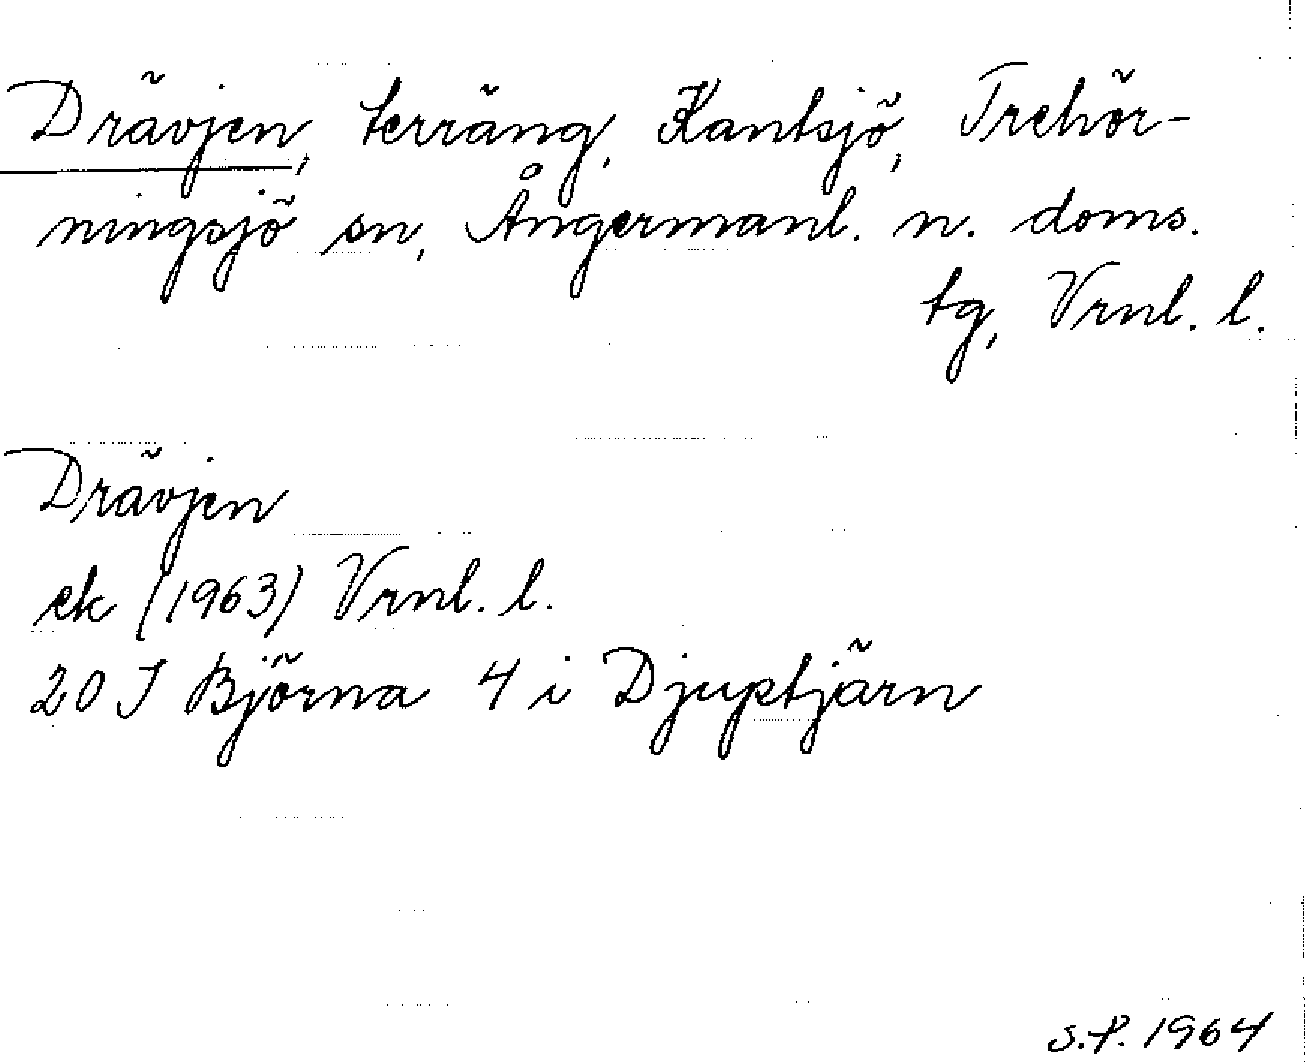 Drävjen, terräng, Kantsjö, Trehör-
ningsjö sn, Ångermanl. n. doms.
tg, Vrnl. l.
Drävjen
ek (1963) Vrnl. l.
20 J Björna 4 i Djuptjärn
S.P. 1964